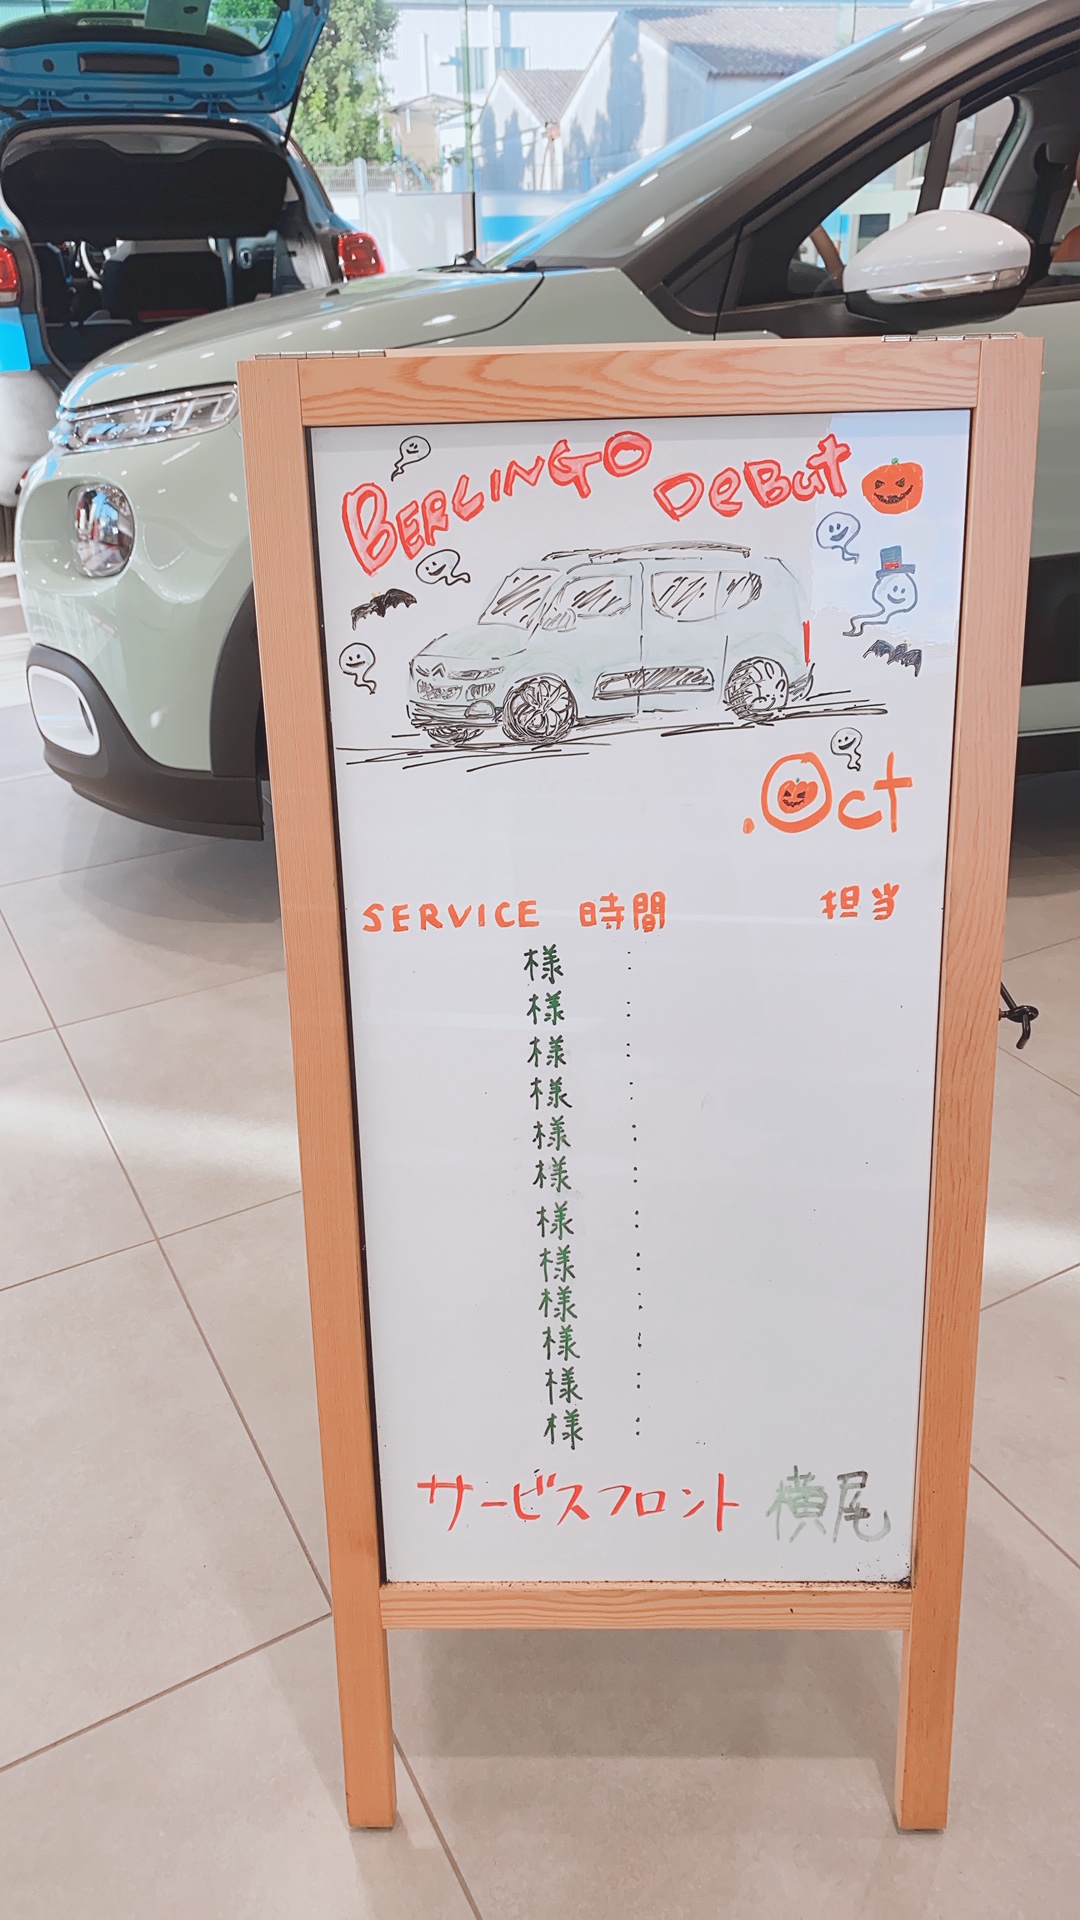 BERLINGO DeBut
.Oct
SERVICE 時間 担当
様 :
様 :
様 :
様 :
様 :
様 :
様 :
様 :
様 :
様 :
様 :
様 :
サービスフロント 横尾